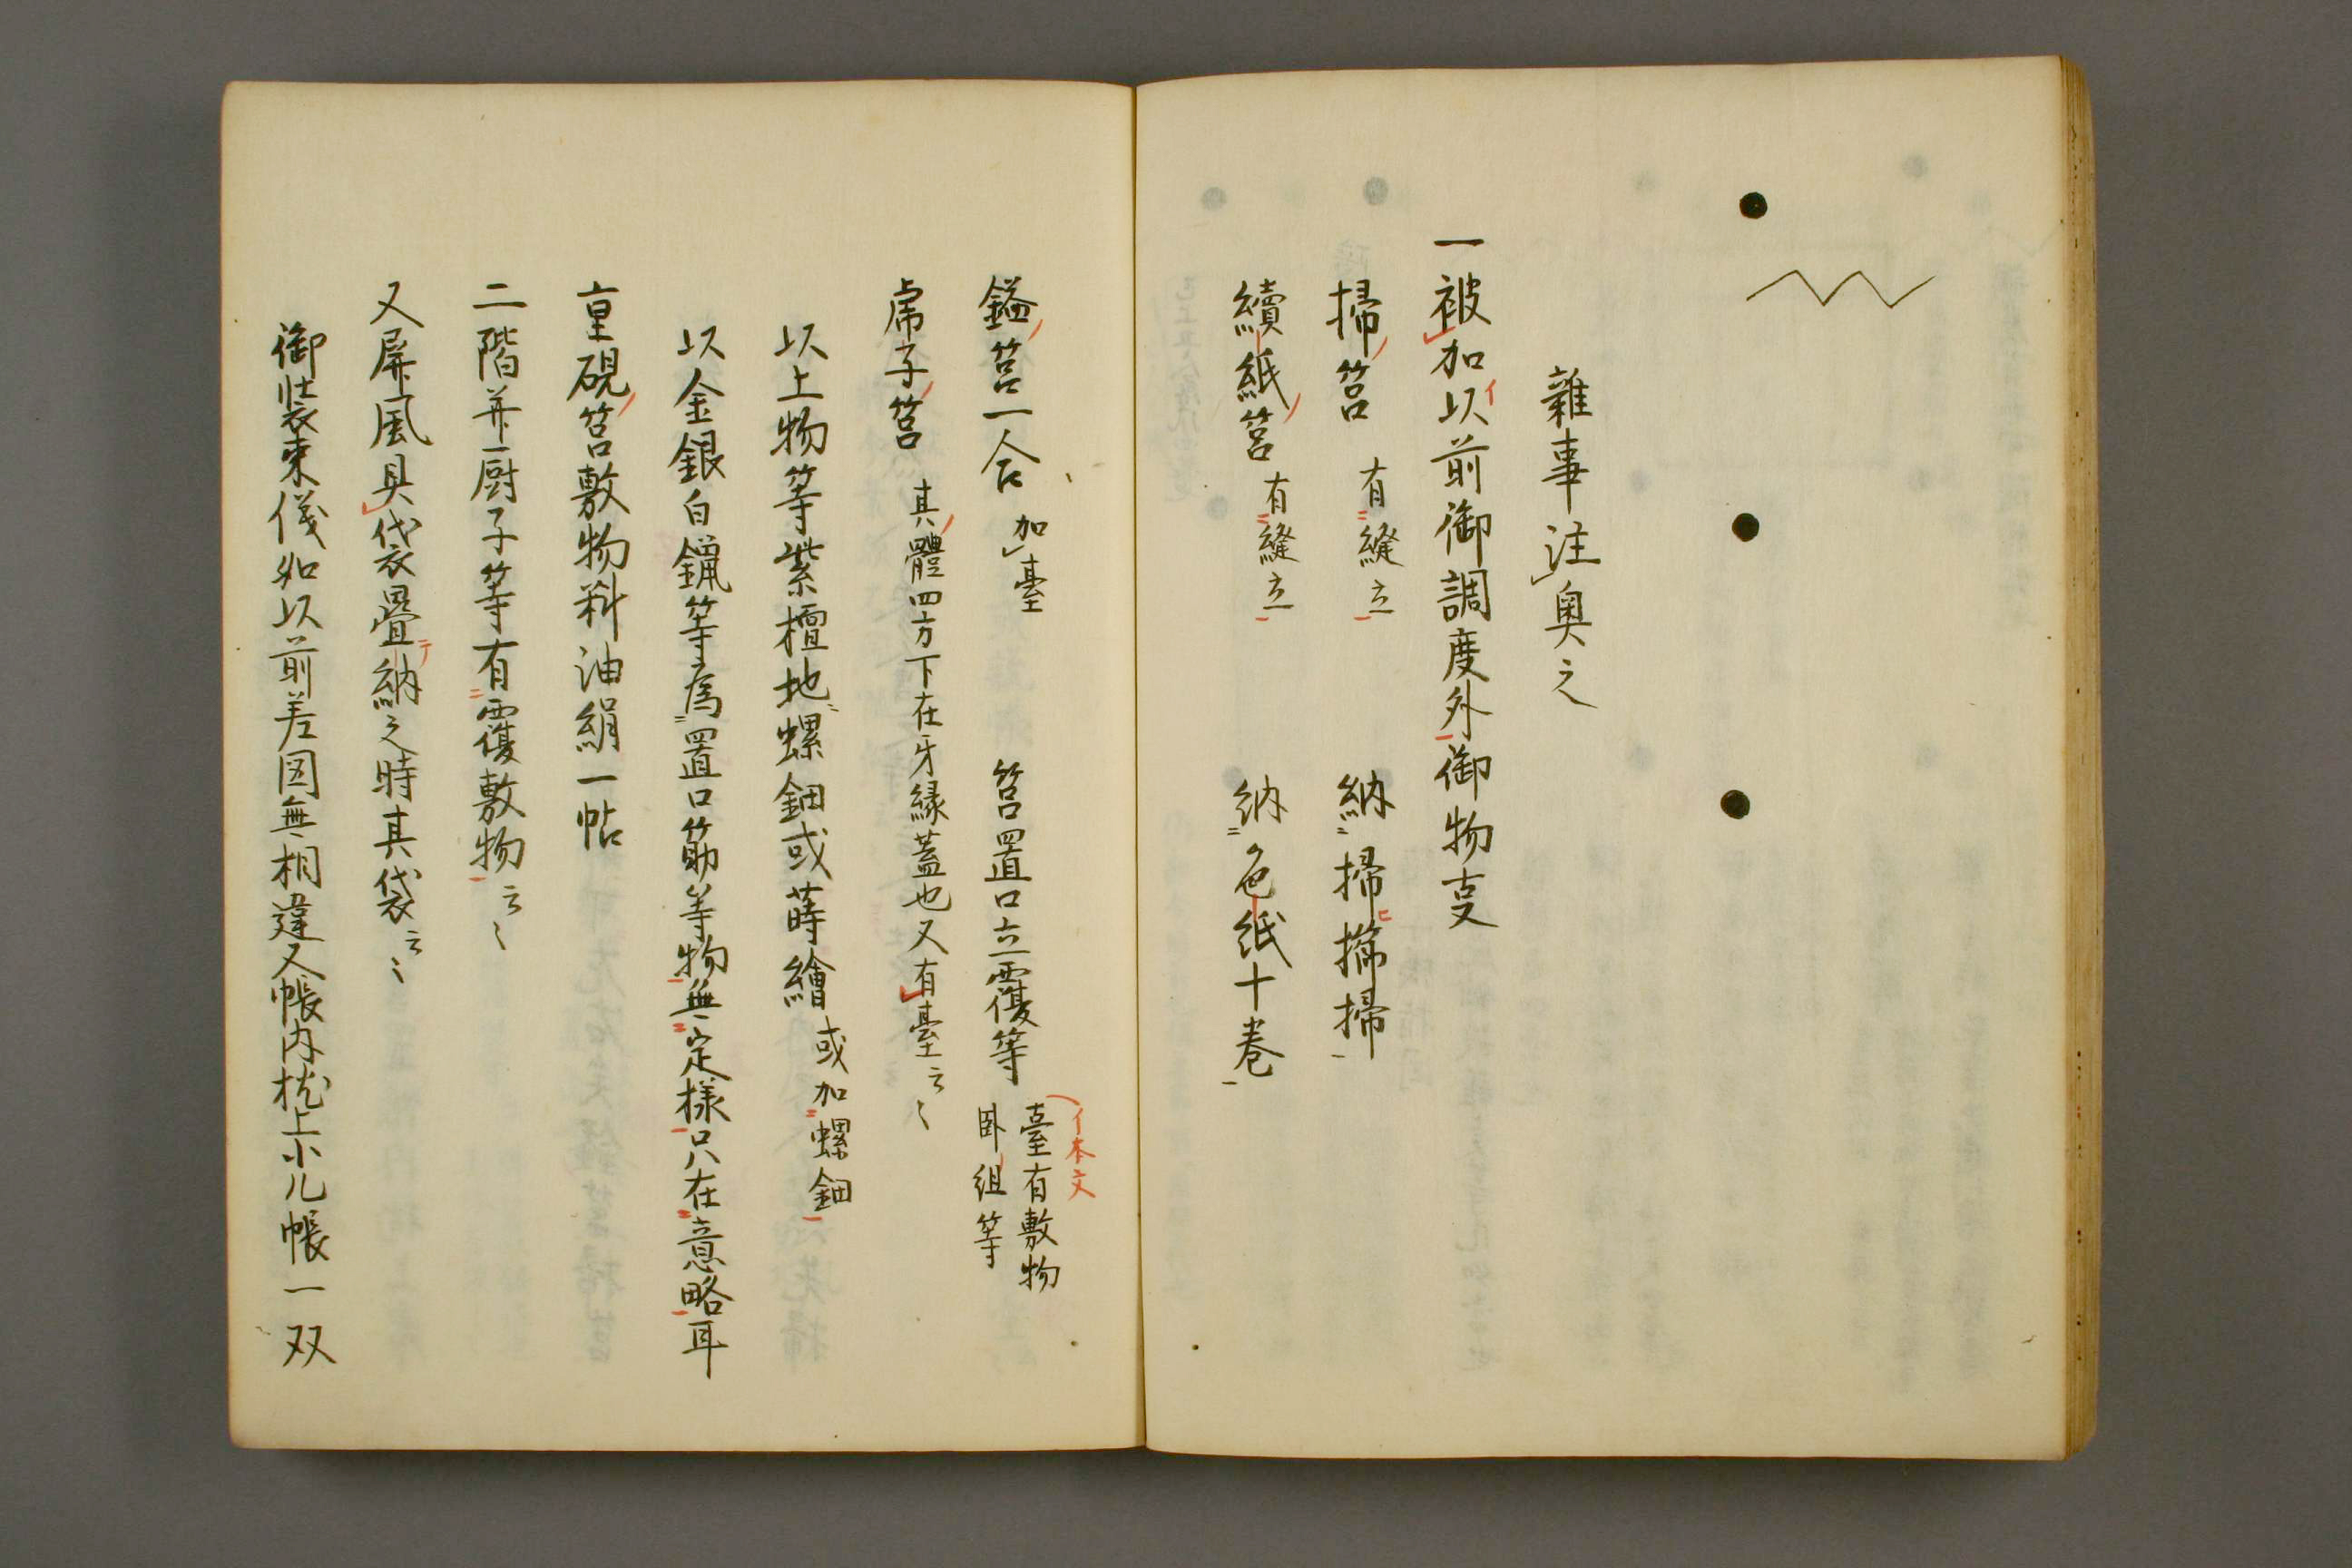 雜事注奧之
一被加以前御調度外御物支
イ
掃筥 有縫立 納掃㧳掃
續紙筥 有縫立 納色紙十巻
鎰筥一合 加臺 筥置口立覆等 臺有敷物
卧組等
イ本文
虎子筥 其體四方下在牙縁蓋也又有臺云〻
以上物等紫檀地螺鈿或蒔繪 或加螺鈿
以金銀白鑞等爲置口筋等物無定樣只在意略耳
重硯筥敷物料油絹一帖
二階并厨子等有覆敷物云〻
又屏風具袋疊納之時其袋云〻
御裝束儀如以前差図無相違又帳内枕上小几帳一双